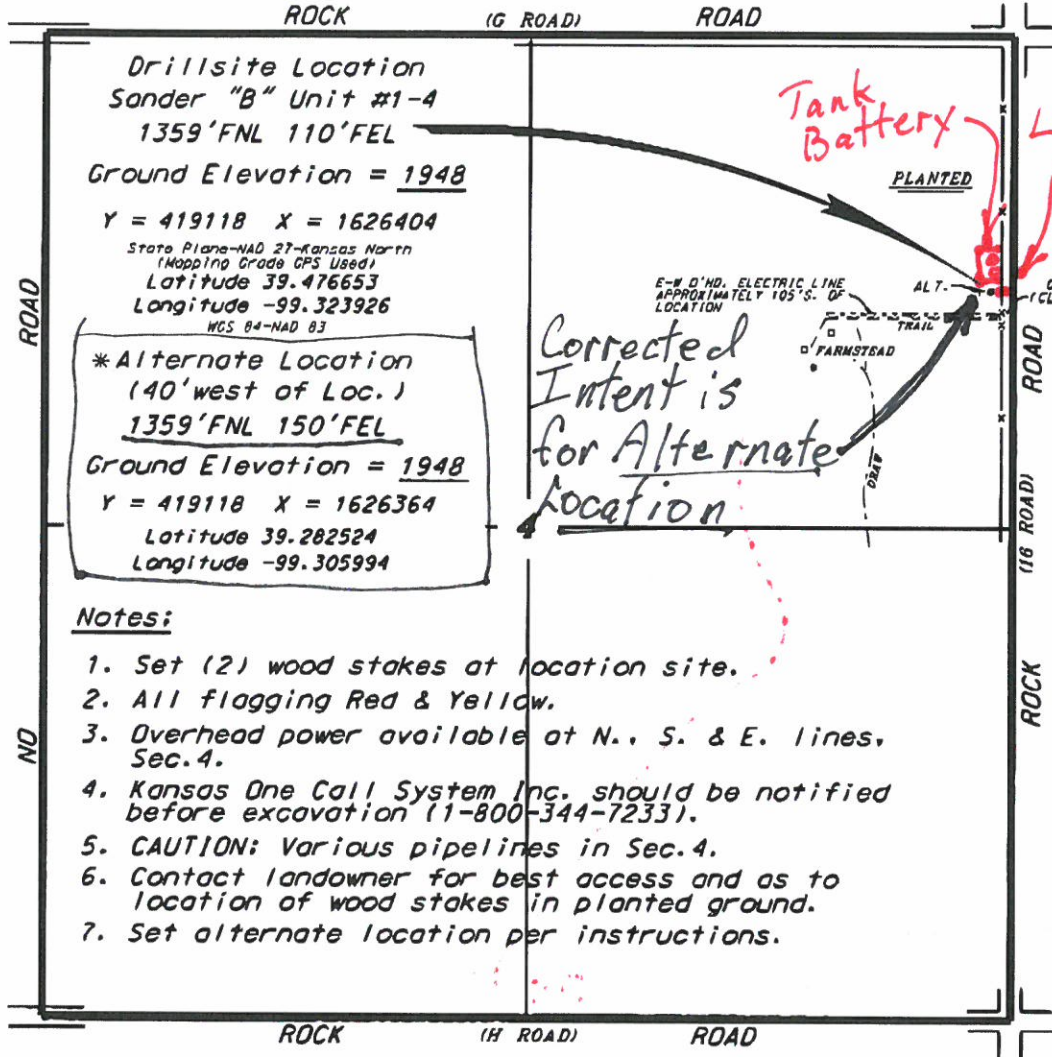 ROCK (G ROAD) ROAD
Drillsite Location
Sander "B" Unit #1-4
1359'FNL 110'FEL
Ground Elevation = 1948
Y = 419118 X = 1626404
State Plane-NAD 27-Kansas North
(Mapping Grade GPS Used)
Latitude 39.476653
Longitude -99.323926
WGS 84-NAD 83
*Alternate Location
(40'west of Loc.)
1359'FNL 150'FEL
Ground Elevation = 1948
Y = 419118 X = 1626364
Latitude 39.282524
Longitude -99.305994
Tank
Battery
L
PLANTED
E-W O'HD. ELECTRIC LINE
APPROXIMATELY 105'S. OF
LOCATION
ALT.
TRAIL
FARMSTEAD
DRAW
Corrected
Intent is
for Alternate
Location
4
ROAD
NO
ROAD
(16 ROAD)
ROCK
Notes:
1. Set (2) wood stakes at location site.
2. All flagging Red & Yellow.
3. Overhead power available at N., S. & E. lines,
Sec.4.
4. Kansas One Call System Inc. should be notified
before excavation (1-800-344-7233).
5. CAUTION: Various pipelines in Sec.4.
6. Contact landowner for best access and as to
location of wood stakes in planted ground.
7. Set alternate location per instructions.
ROCK (H ROAD) ROAD